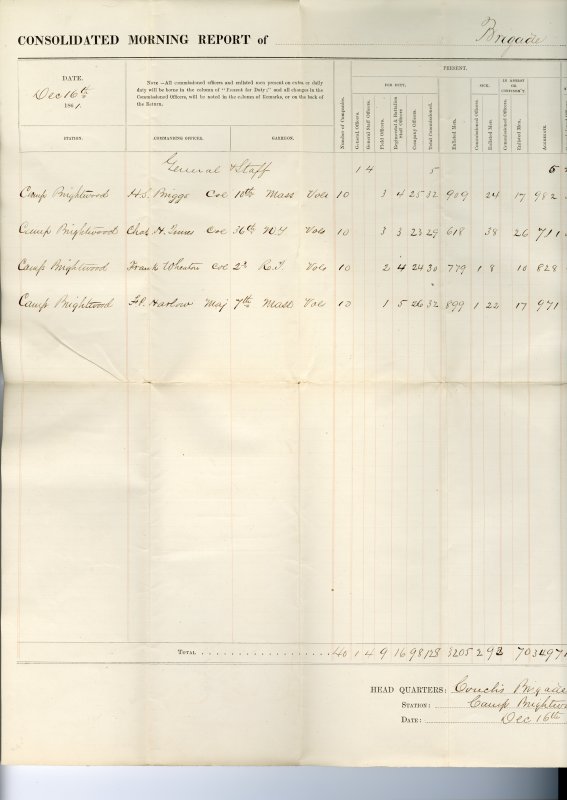 CONSOLIDATED MORNING REPORT of Brigade
DATE.
Dec 16th
1861.
NOTE.—All commissioned officers and enlisted men present on extra or daily
duty will be borne in the column of "Present for Duty;" and all changes in the
Commissioned Officers, will be noted in the column of Remarks, or on the back of
the Return.
STATION. COMMANDING OFFICER. GARRISON.
Number of Companies.
PRESENT.
FOR DUTY. SICK. IN ARREST OR CONFINEM'T.
General Officers.
General Staff Officers.
Field Officers.
Regimental & Battalion Staff Officers.
Company Officers.
Total Commissioned.
Enlisted Men.
Commissioned Officers.
Enlisted Men.
Commissioned Officers.
Enlisted Men.
AGGREGATE.
General & Staff 1 4 5 5
Camp Brightwood H.S. Briggs Col 10th Mass Vols 10 3 4 25 32 909 24 17 982
Camp Brightwood Chas. H. Innes Col 36th N.Y Vols 10 3 3 23 29 618 38 26 711
Camp Brightwood Frank Wheaton Col 2d R.I. Vols 10 2 4 24 30 779 1 8 10 828
Camp Brightwood F.P. Harlow Maj 7th Mass Vols 10 1 5 26 32 899 1 22 17 971
TOTAL 40 1 4 9 16 98 128 3205 2 92 70 3497
HEAD QUARTERS: Couch's Brigade
STATION: Camp Brightwo
DATE: Dec 16th